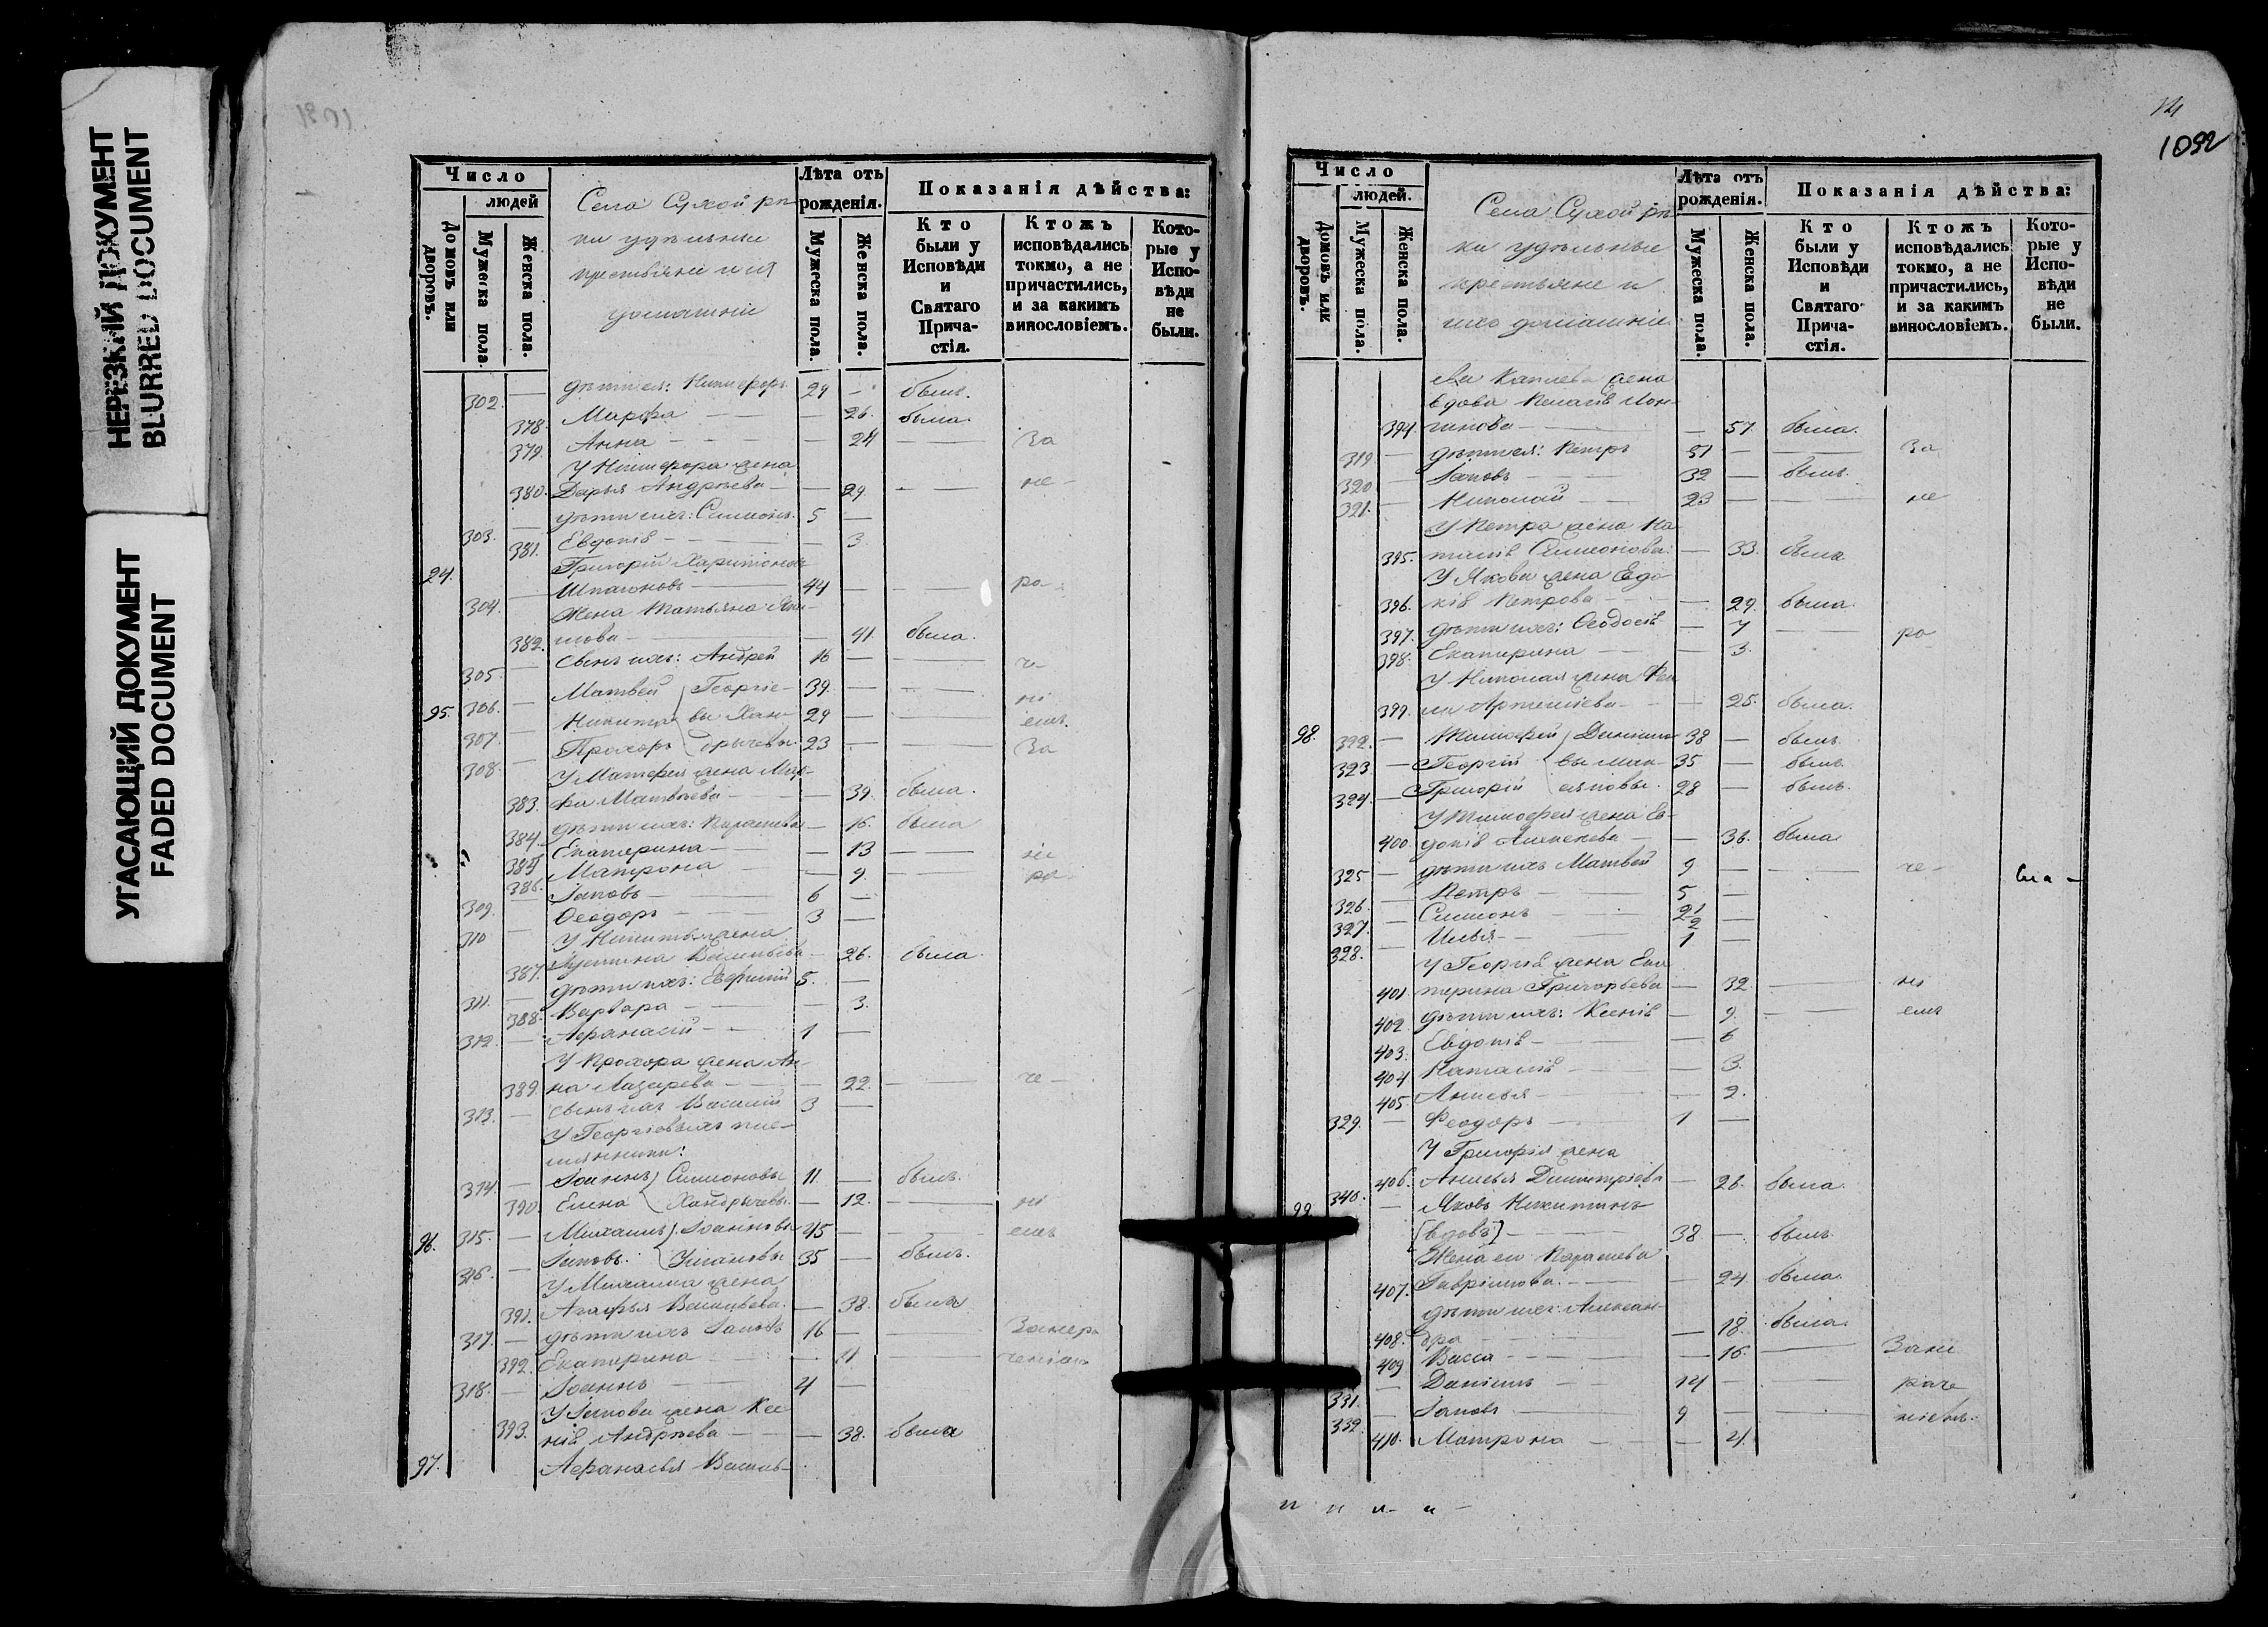 НЕРЕЗКИЙ ДОКУМЕНТ
BLURRED DOCUMENT
УГАСАЮЩИЙ ДОКУМЕНТ
FADED DOCUMENT
Число
людей
Домовъ или дворовъ.
Мужеска пола.
Женска пола.
Села Сухой рѣ-
ки удѣльные
крестьяне и ихъ
домашніе
Лѣта отъ рожденія.
Мужеска пола.
Женска пола.
Показанія дѣйства:
Кто были у Исповѣди и Святаго Прича-стія.
Ктожъ исповѣдались токмо, а не причастились, и за какимъ винословіемъ.
Кото-рые у Испо-вѣди не были.
302. — дѣти ея: Никифоръ 29 — былъ.
378. Марфа — 26. была.
379. Анна — 24 — За
У Никифора жена
380. Дарья Андрѣева — 29. — не-
303. дѣти ихъ: Симеонъ 5 —
381. Евдокія — 3.
24. Григорій Харитоновъ
304. 44 — ра-
Жена Татьяна
382. — 41. была.
305. — сынъ ихъ: Андрей 16 — че-
95. 306. — Матвей Георгіе- 39. — ні
307. — Никита вы Хан- 29 — емъ.
308. — Прохоръ дрычевы 23 — За
У Матфея жена Мар-
383. фа Матвѣева — 39. была.
384. дѣти ихъ: Параскева — 16. была
385 Екатерина — 13 — не
386. Матрона — 9. — ра-
309. Іаковъ — 6 —
310 — Ѳеодоръ — 3 —
У Никиты жена
387. Васильева — 26. была.
311. — дѣти ихъ: Евфимій 5. —
388. Варвара — 3.
312. — Афанасій — 1 —
У Прохора жена Ан-
389. на Лазарева — 22. — че-
313. — сынъ ихъ Василій 3 —
У Георгіевыхъ пле-
мянники:
314. — Іоаннъ Симеоновы 11. — былъ.
390. Елена Хандрычевы. — 12. — ні
96. 315. — Михаилъ Іоанновы 45 — емъ
316. — Іаковъ. 35 — былъ.
У Михаила жена
391. Агафья Васильева. — 38. была
317. — дѣти ихъ Іаковъ 16 — Занера
392. Екатерина — 11 — ченіемъ
318. — Іоаннъ — 4 —
У Іакова жена Ксе-
393. нія Андрѣева — 38. была
97. Афанасья Василь-
14
1092
Число
людей.
Домовъ или дворовъ.
Мужеска пола.
Женска пола.
Села Сухой рѣ-
ки удѣльные
крестьяне и
ихъ домашніе
Лѣта отъ рожденія.
Мужеска пола.
Женска пола.
Показанія дѣйства:
Кто были у Исповѣди и Святаго Прича-стія.
Ктожъ исповѣдались токмо, а не причастились, и за какимъ винословіемъ.
Кото-рые у Испо-вѣди не были.
ева жена
вдова Пелагія Лон-
394. гинова — 57. была.
319 — дѣти ея: Петръ 51 — За
320 — Іаковъ 32 — былъ.
321. — Николай 23 — не
У Петра жена На-
395. талія Симеонова. — 33. была
У Якова жена Евдо-
396. кія Петрова — 29. была.
397. дѣти ихъ: Ѳеодосія — 7 — ра
398. Екатерина — 3.
У Николая жена
399. Артеміева — 25. была.
98. 322. — Тимофей Даніило- 38 — былъ
323. — Георгій вы 35 — былъ
324. — Григорій 28 — былъ.
У Тимофея жена Ев-
400. докія Алексѣева — 36. была
325 — дѣти ихъ Матвей 9 — че-
326. — Петръ — 5 —
327. — Симеонъ — 2 —
328. — Илья — 1 —
У Георгія жена Ека
401. терина Григорьева — 32. — ні
402. дѣти ихъ: Ксенія — 9. — емъ
403. Евдокія — 6
404 Наталія — 3.
405. Анисья — 2.
329. — Феодоръ — 1 —
У Григорія жена
406. Анисья Димитріева — 26. была.
99 340. — Яковъ Никитинъ
[вдовъ] — 38 — былъ
Жена ея Параскева
407. Гавріилова. — 24. была.
дѣти ихъ: Алексан-
408. дра — 18. была.
409 Васса — 16. — Зане
331. — Даніилъ — 14 — раче
332. — Іаковъ — 9 — ніемъ.
410. Матрона — 4.